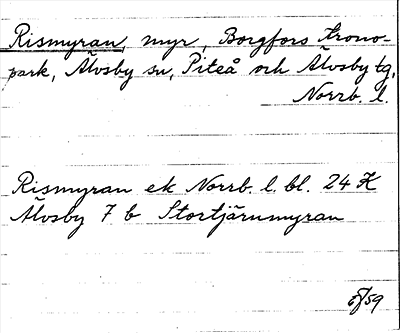 Rismyran, myr, Borgfors krono-
park, Älvsby sn, Piteå och Älvsby tg,
Norrb. l.
Rismyran ek Norrb. l. bl. 24 K
Älvsby 7 b Stortjärnmyran
/59